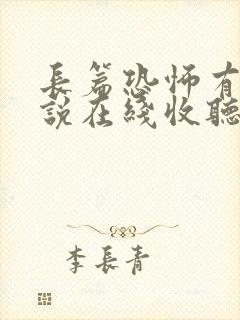 長篇恐怖有
說在綫收聽
李長青